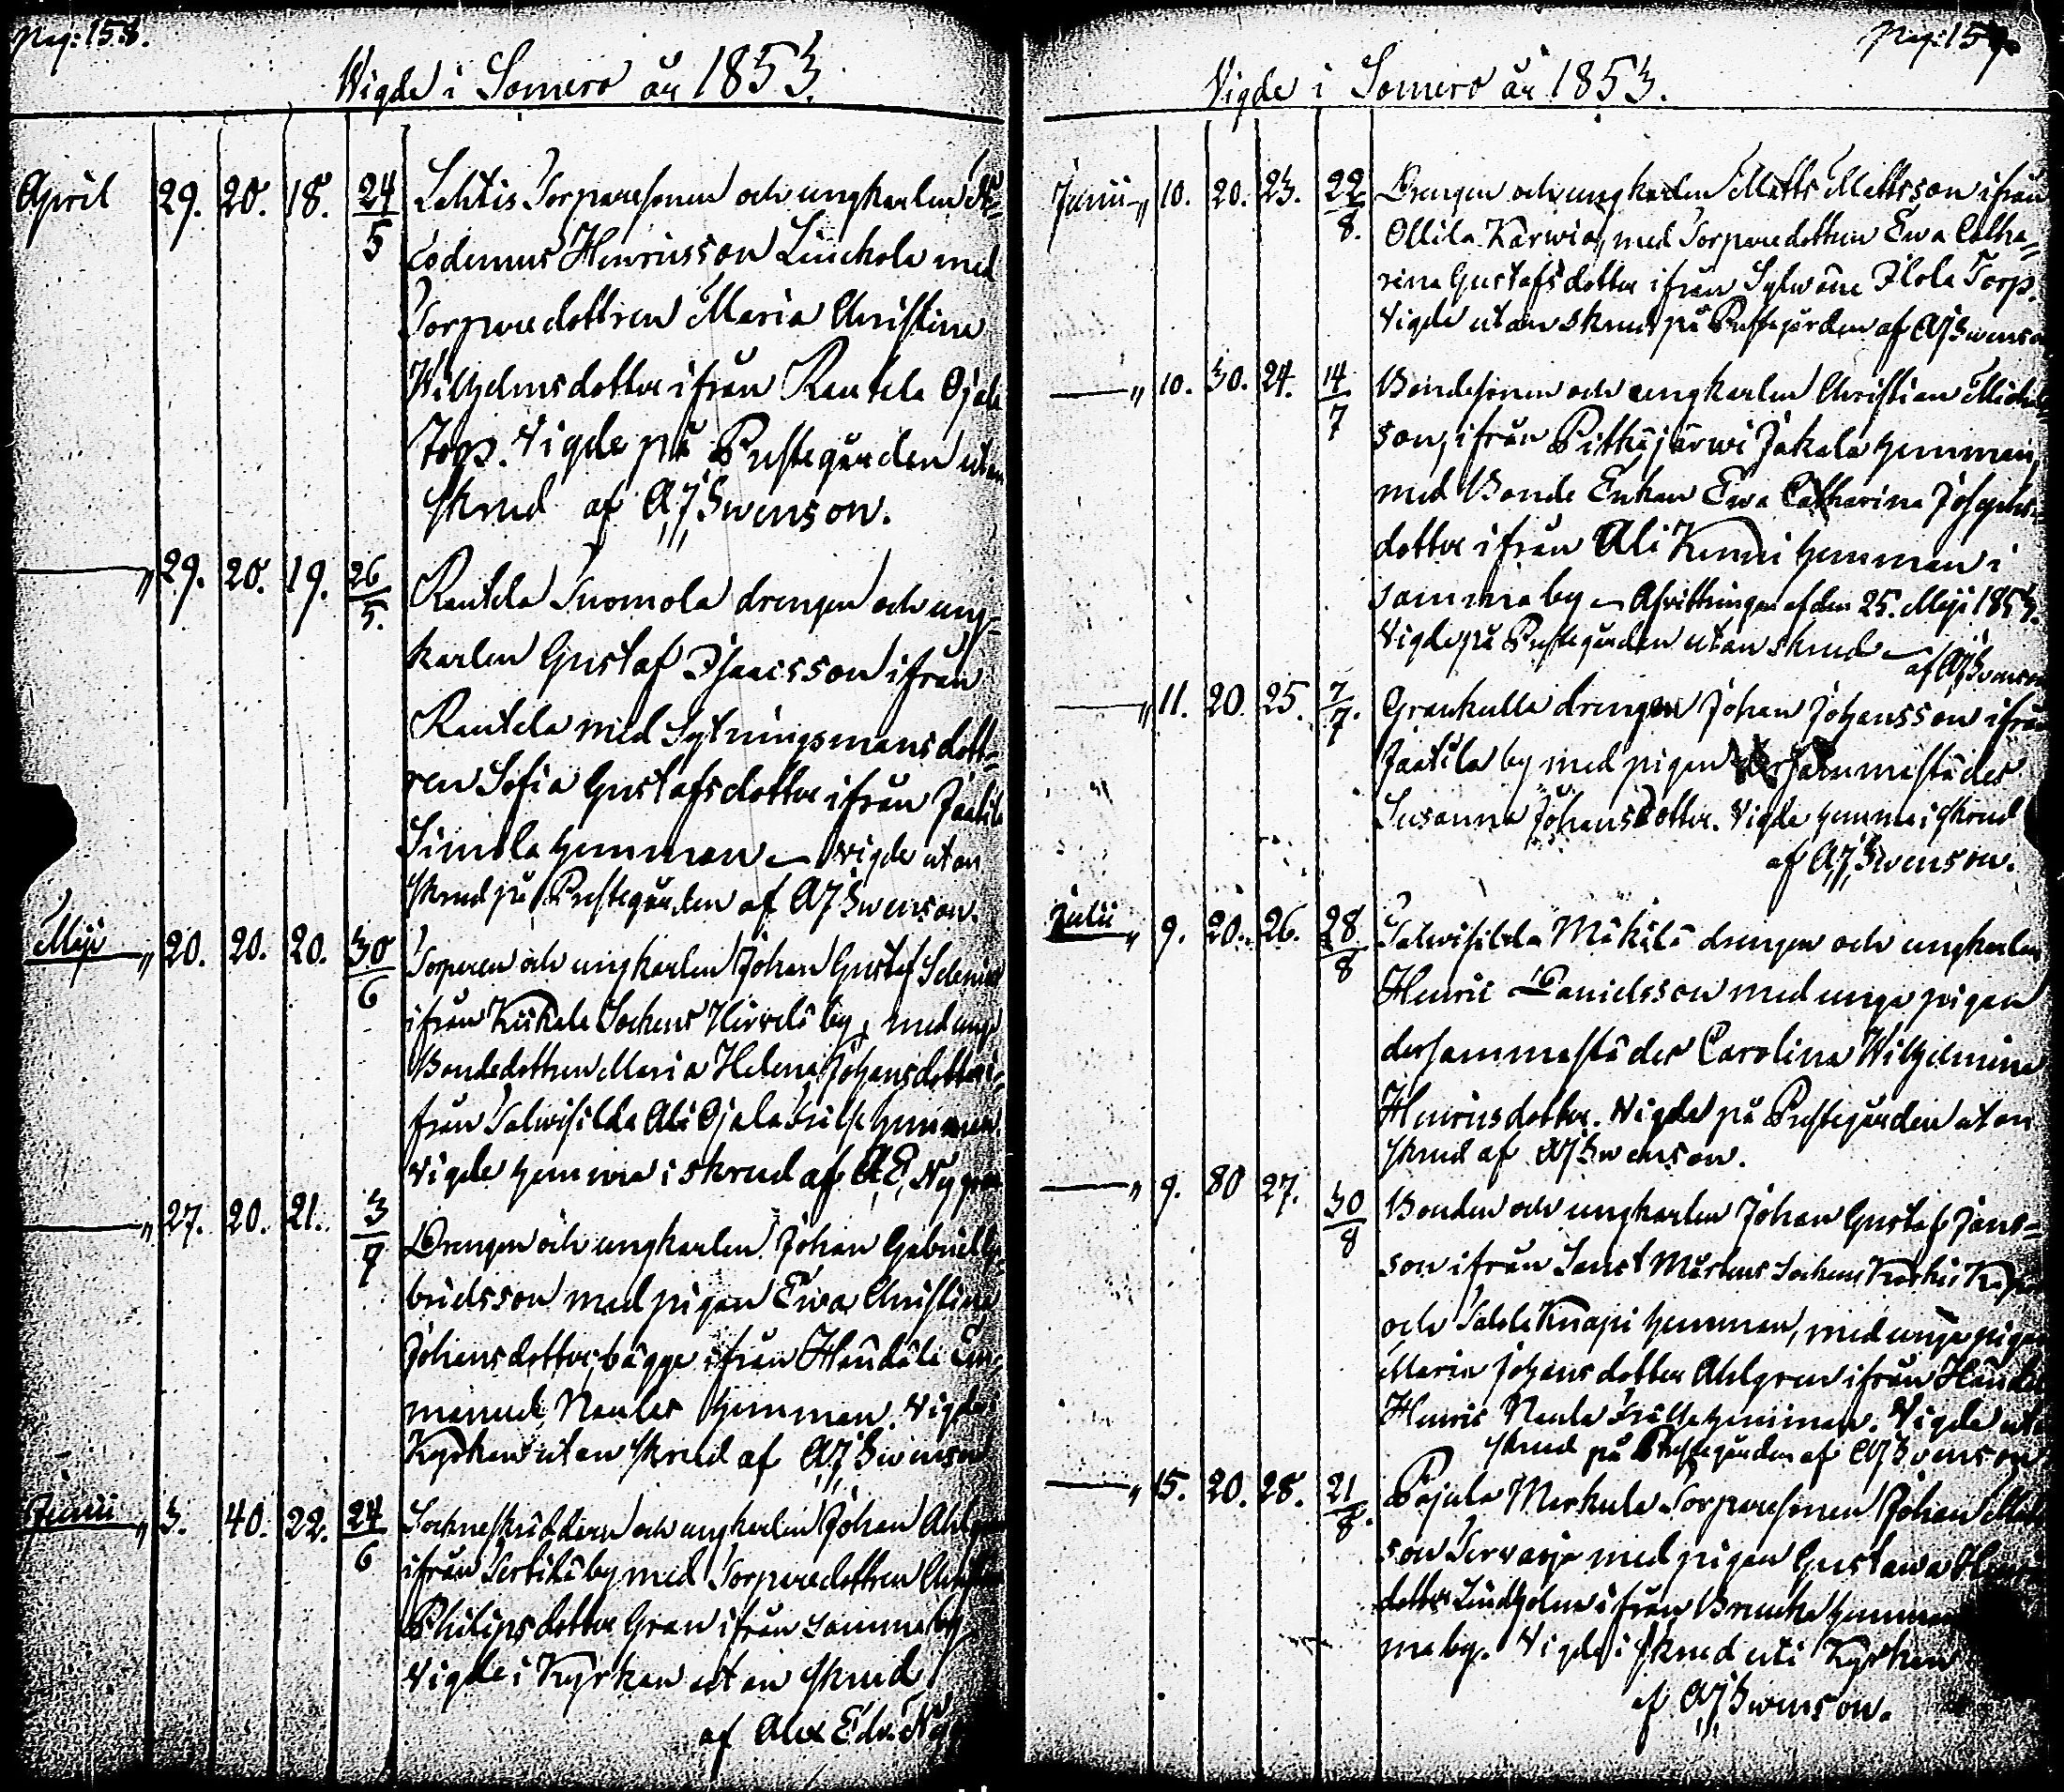 Pag: 158.
Vigde i Somero år 1853.
April 29. 20. 18. 24/5 Lehtis Torparesonen och ungkarlen Ni-
codemus Henricsson Lindholm med
Torparedottren Maria Christina
Wilhelmsdotter ifrån Rautela Ojala
Torp. Vigde på Prestegården utan
skrud af A,J, Swenson.
—„ 29. 20. 19. 26/5. Rautela Suomola drengen och ung-
karlen Gustaf Isaacsson ifrån
Rautela med Sytningsmansdott-
ren Sofia Gustafsdotter ifrån Jaatila
Simola hemman — vigde utan
skrud på Prestegården af AJ Swenson.
Maji „ 20. 20. 20. 30/6 Torparen och ungkarlen Johan Gustaf
ifrån Kiikala Sockens Hirvelä by, med unga
Bondedottren Maria Helena Johansdotter i-
från Talwisilda Ali Ojala hemman.
Vigde hemma i skrud af A,E, Nygren
—„ 27. 20. 21. 3/7 Drengen och ungkarlen Johan Gabriel Ga-
brielsson med pigan Ewa Christina
Johansdotter, bägge ifrån Häntälä Em-
manuel Naulas hemman. Vigde i
Kyrkan utan skrud af A,J, Swenson
Junii „ 3. 40. 22. 24/6 Socknesküddaren och ungkarlen Johan Ahlgren
ifrån Terttilä by med Torparedottren Christina
Philipsdotter Gran ifrån samma by
Vigde i Kyrkan utan skrud
af Alex Edv. Nyg
Pag: 159.
Vigde i Somero år 1853.
Junii „ 10. 20. 23. 22/8. Drengen och ungkarlen Matts Mattsson ifrån
Ollila Karwia, med Torparedottren Ewa Catha-
rina Gustafsdotter ifrån Sylwäne Ilola Torp.
Vigde utan skrud på Prestegården af AJ Swenson
—„ 10. 30. 24. 14/7 Bondesonen och ungkarlen Christian Michels-
son, ifrån Pitkäjärwi Jakala hemman,
med Bonde Enkan Ewa Catharina Josephs-
dotter ifrån Ali Kenni hemman i
samma by — Afvittringen af den 25. Maji 1853.
Vigde på Prestegården utan skrud — af AJ Swenson
—„ 11. 20. 25. 7/7. Grankulla drengen Johan Johansson ifrån
Jaatila by med pigan dersammastädes
Susanna Johansdotter. Vigde hemma i skrud
af A,J, Swenson.
Julii „ 9. 20. 26. 28/8 Talwisilda Mäkilä drengen och ungkarlen
Henric Danielsson med unga pigan
dersammastädes Carolina Wilhelmina
Henricsdotter. Vigde på Prestegården utan
skrud af AJ Swenson.
—„ 9. 80 27. 30/8 Bonden och ungkarlen Johan Gustaf Jans-
son ifrån Sanct Mårtens Sockens Karkis
och Talola Knapi hemman, med unga pigan
Maria Johansdotter Ahlgren ifrån Häntälä
Henric Naula hemman. Vigde utan
skrud på Prestegården af AJ Swenson
—„ 15. 20. 28. 21/8. Pajula Markula Torparesonen Johan
son med pigan Gustawa Henrics-
dotter Lindholm ifrån hemman
ma by. Vigde i skrud uti Kyrkan
af A,J, Swenson.